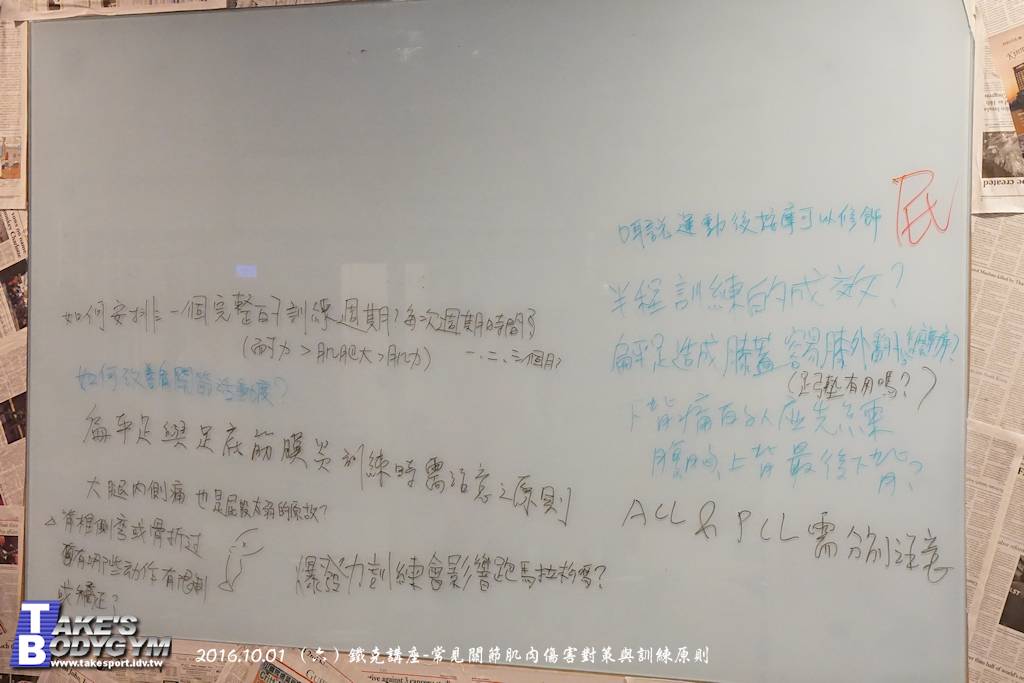 屁
听說運動後按摩可以修飾
半程訓練的成效？
如何安排一個完整的訓練週期？每次週期的時間？
(耐力 > 肌肥大 > 肌力) 一.二.三個月?
扁平足造成膝蓋容易膝外翻
(足弓墊有用嗎？)
如何改善關節活動度？
下背痛的人應先練
腹胸,上背最後下背？
扁平足與足底筋膜炎訓練時需注意之原則
大腿內側痛 也是屁股太弱的原故？
ACL & PCL 需分別注意
脊椎側彎或骨折過
會有哪些動作有限制
或矯正？
爆發力訓練會影響跑馬拉松嗎？
TAKE'S
BODYGYM
www.takesport.idv.tw
2016.10.01 （六）鐵克講座-常見關節肌肉傷害對策與訓練原則